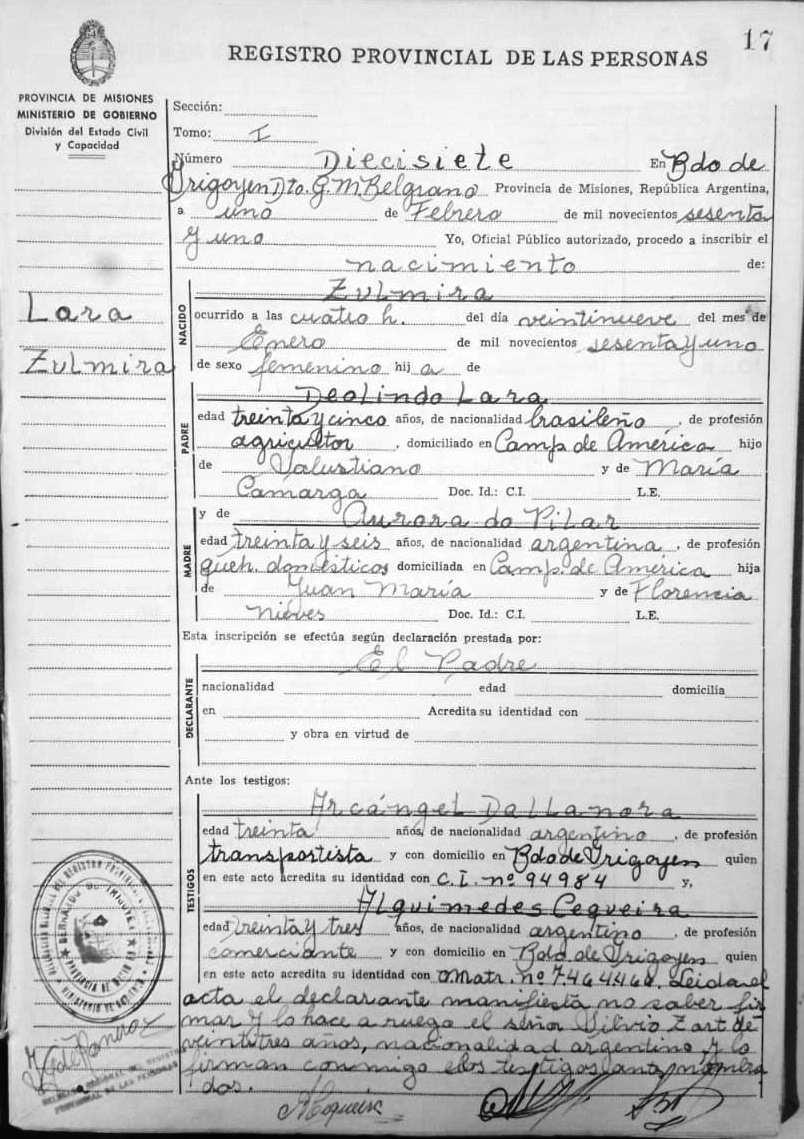 17
REGISTRO PROVINCIAL DE LAS PERSONAS
PROVINCIA DE MISIONES
MINISTERIO DE GOBIERNO
División del Estado Civil
y Capacidad
Lara
Zulmira
Sección:
Tomo: I
Número Diecisiete En Bdo de
Irigoyen Dto. G. M Belgrano Provincia de Misiones, República Argentina,
a uno de Febrero de mil novecientos sesenta
y uno Yo, Oficial Público autorizado, procedo a inscribir el
nacimiento de:
NACIDO
Zulmira
ocurrido a las cuatro h. del día veintinueve del mes de
Enero de mil novecientos sesenta y uno
de sexo femenino hij a de
PADRE
Deolindo Lara
edad treinta y cinco años, de nacionalidad brasileño, de profesión
agricultor, domiciliado en Camp. de América hijo
de Salustiano y de María
Camarga Doc. Id.: C.I. L.E.
MADRE
y de Aurora do Pilar
edad treinta y seis años, de nacionalidad argentina, de profesión
queh. domésticos domiciliada en Camp. de América hija
de Juan María y de Florencia
Nieves Doc. Id.: C.I. L.E.
Esta inscripción se efectúa según declaración prestada por:
DECLARANTE
El Padre
nacionalidad edad domicilia
en Acredita su identidad con
y obra en virtud de
Ante los testigos:
TESTIGOS
Arcángel Dallanora
edad treinta años, de nacionalidad argentino, de profesión
transportista y con domicilio en Bdo de Irigoyen quien
en este acto acredita su identidad con C.I. nº 94984 y,
Alquimedes Cequeira
edad treinta y tres años, de nacionalidad argentino, de profesión
comerciante y con domicilio en Bdo. de Irigoyen quien
en este acto acredita su identidad con Matr. nº Leida el
acta el declarante manifiesta no saber fir
mar y lo hace a ruego el señor Silvio Zart de
veintitres años, nacionalidad argentino y lo
firman conmigo los testigos antes nombra
dos.
BERNARDO DE IRIGOYEN
PROVINCIA DE MISIONES